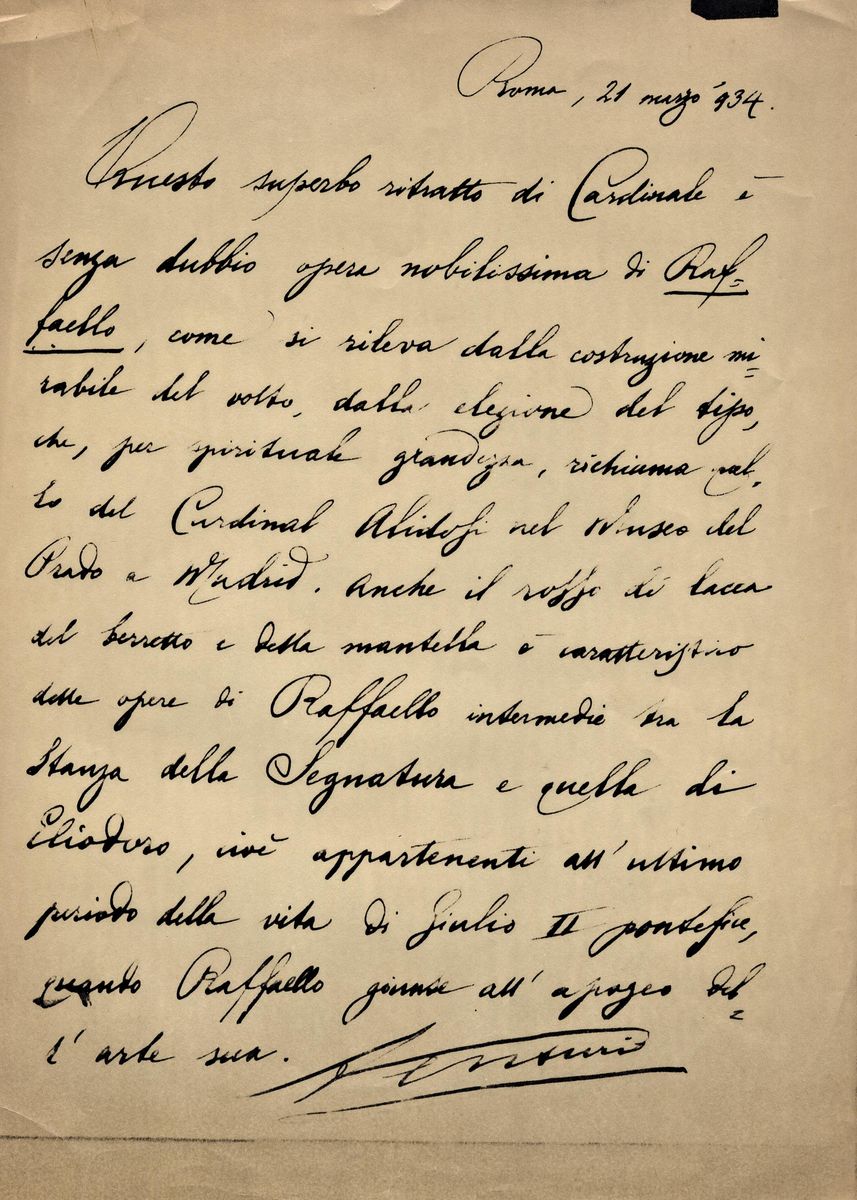 Roma, 21 marzo 934.
Questo superbo ritratto di Cardinale è
senza dubbio opera nobilissima di Raf=
faello, come si rileva dalla costruzione mi=
rabile del volto, dalla elezione del tipo,
che, per spirituale grandezza, richiama quel=
lo del Cardinal Alidosi nel Museo del
Prado a Madrid. Anche il rosso di lacca
del berretto e della mantella è caratteristico
delle opere di Raffaello intermedie tra la
Stanza della Segnatura e quella di
Eliodoro, cioè appartenenti all'ultimo
periodo della vita di Giulio II pontefice,
quando Raffaello giunse all'apogeo del=
l'arte sua. Venturi